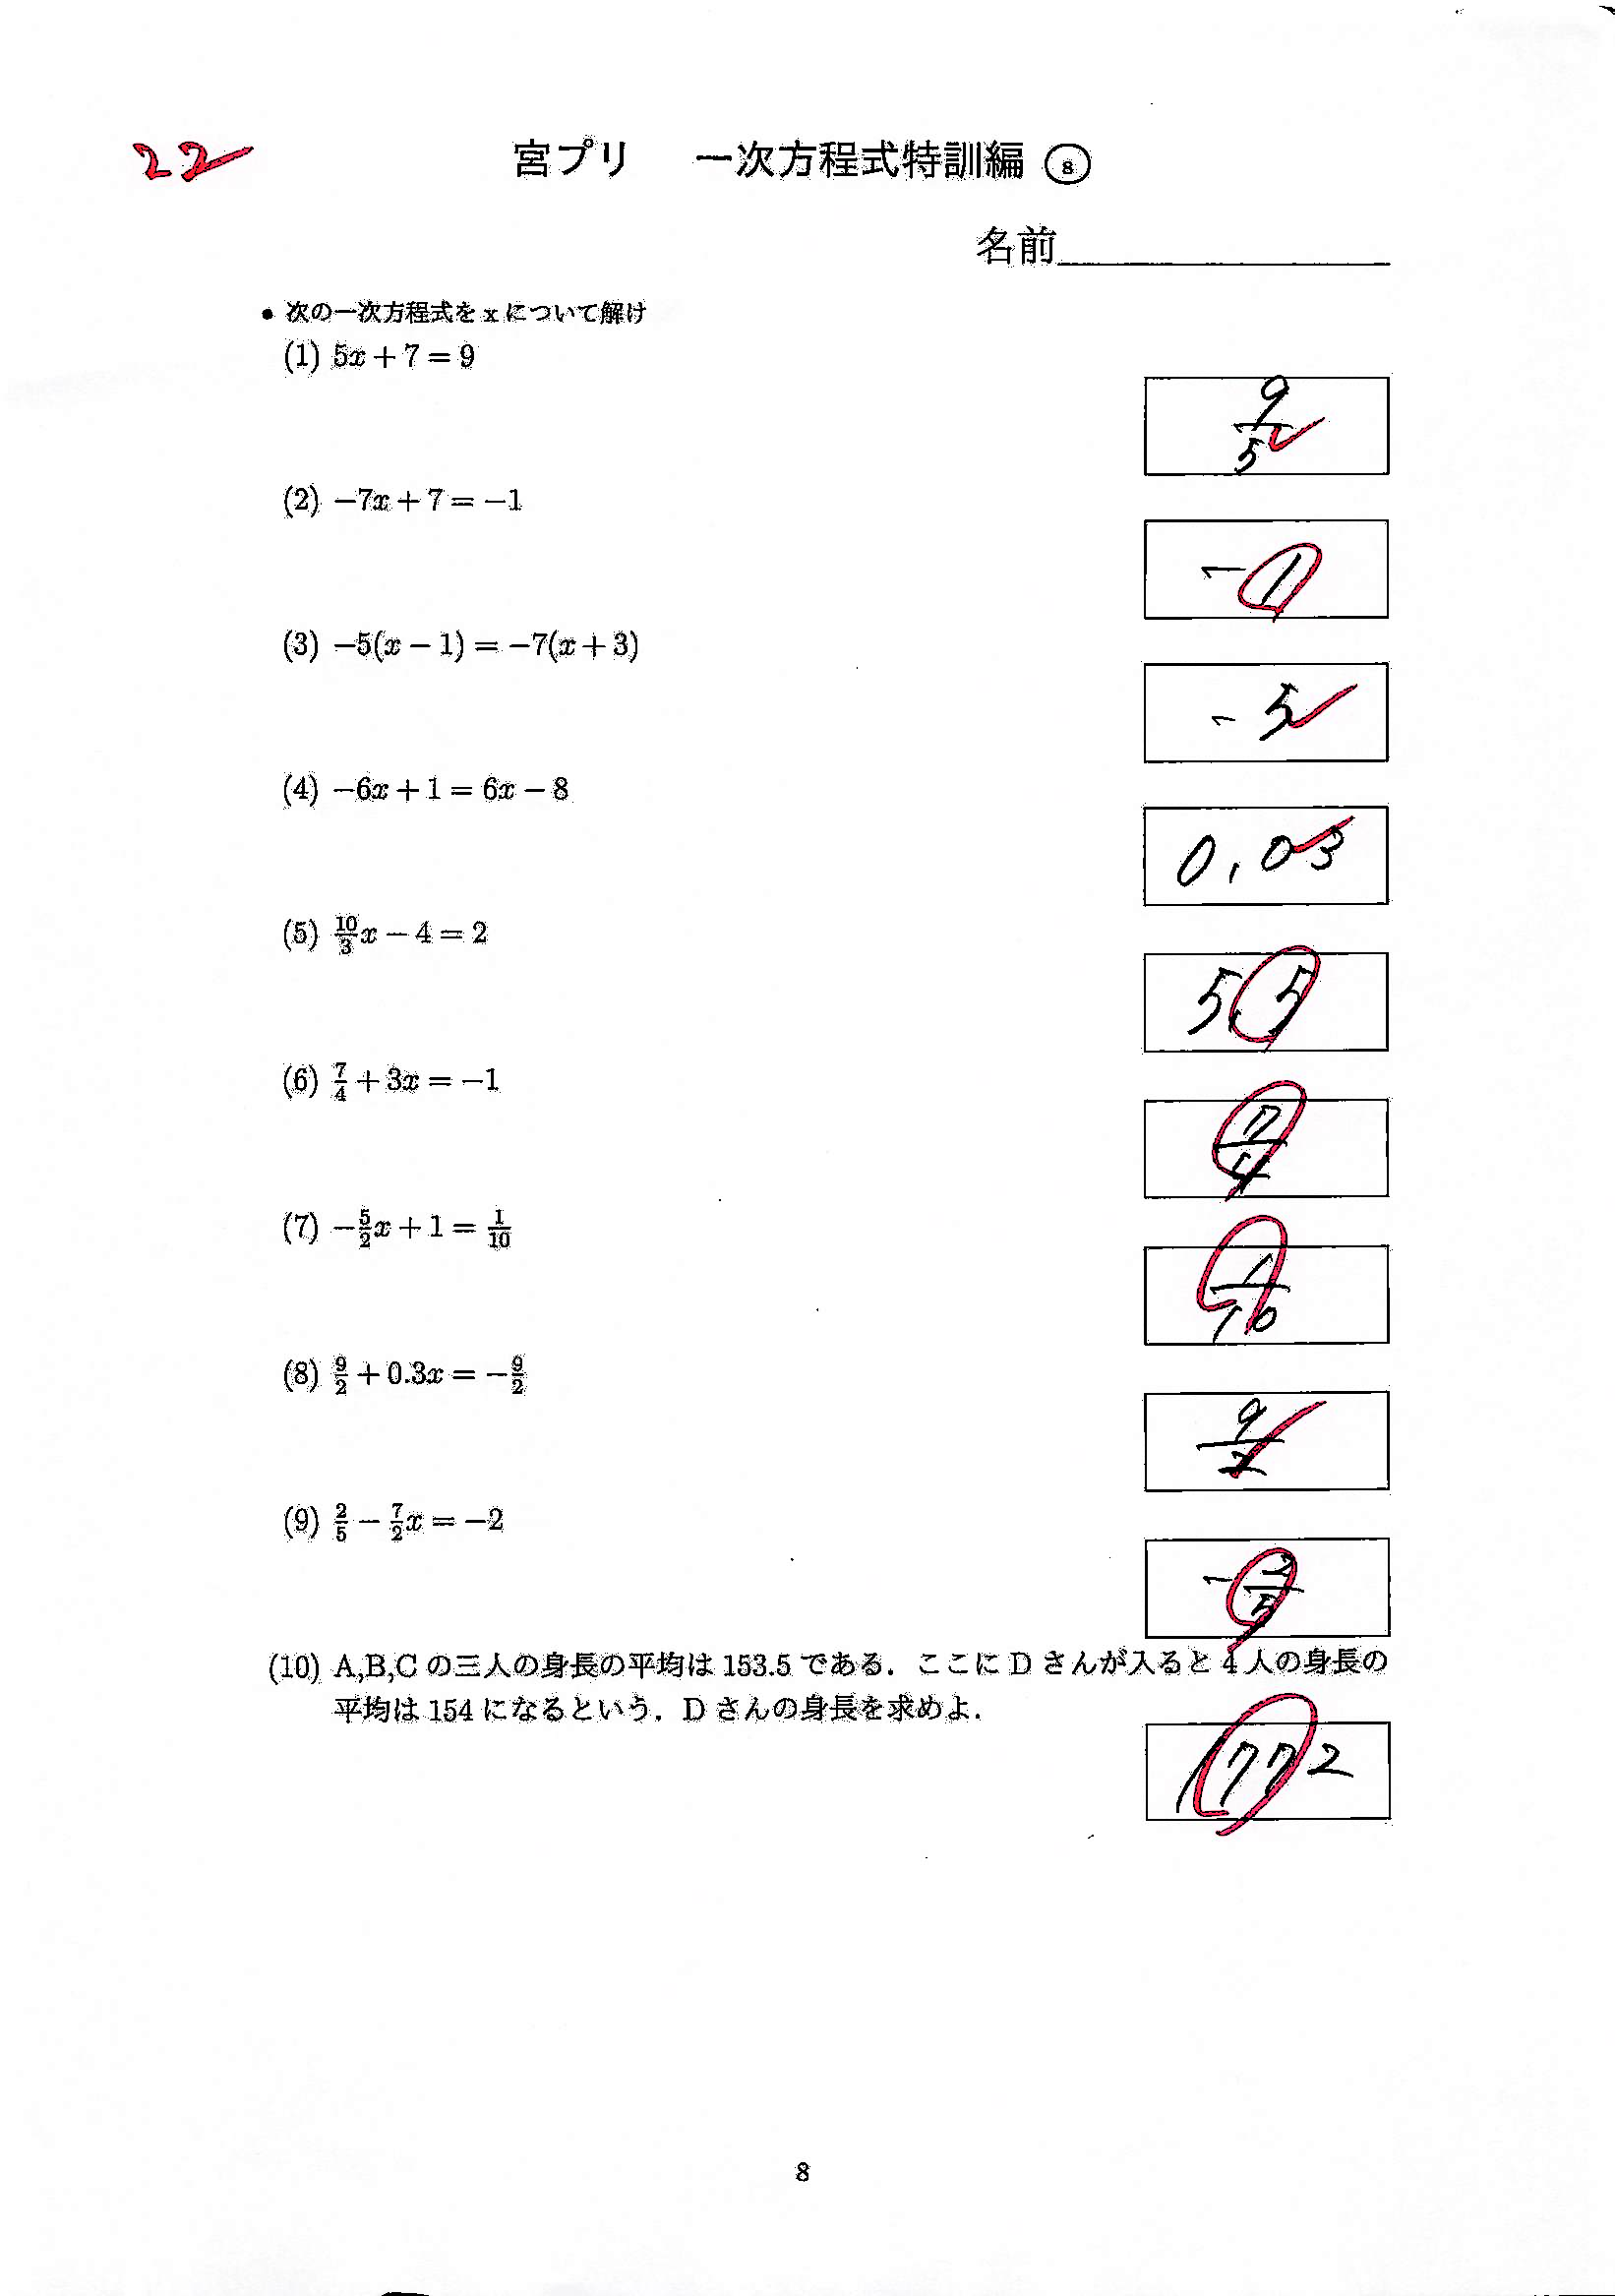 22
宮プリ 一次方程式特訓編 ⑧
名前
• 次の一次方程式を x について解け
(1) 5x + 7 = 9
9/5
(2) −7x + 7 = −1
−1
(3) −5(x − 1) = −7(x + 3)
−5
(4) −6x + 1 = 6x − 8
0.03
(5) 10/3 x − 4 = 2
5.5
(6) 7/4 + 3x = −1
7/4
(7) −5/2 x + 1 = 1/10
1/10
(8) 9/2 + 0.3x = −9/2
9/2
(9) 2/5 − 7/2 x = −2
−2/5
(10) A,B,C の三人の身長の平均は 153.5 である．ここに D さんが入ると 4 人の身長の
平均は 154 になるという．D さんの身長を求めよ．
1772
8